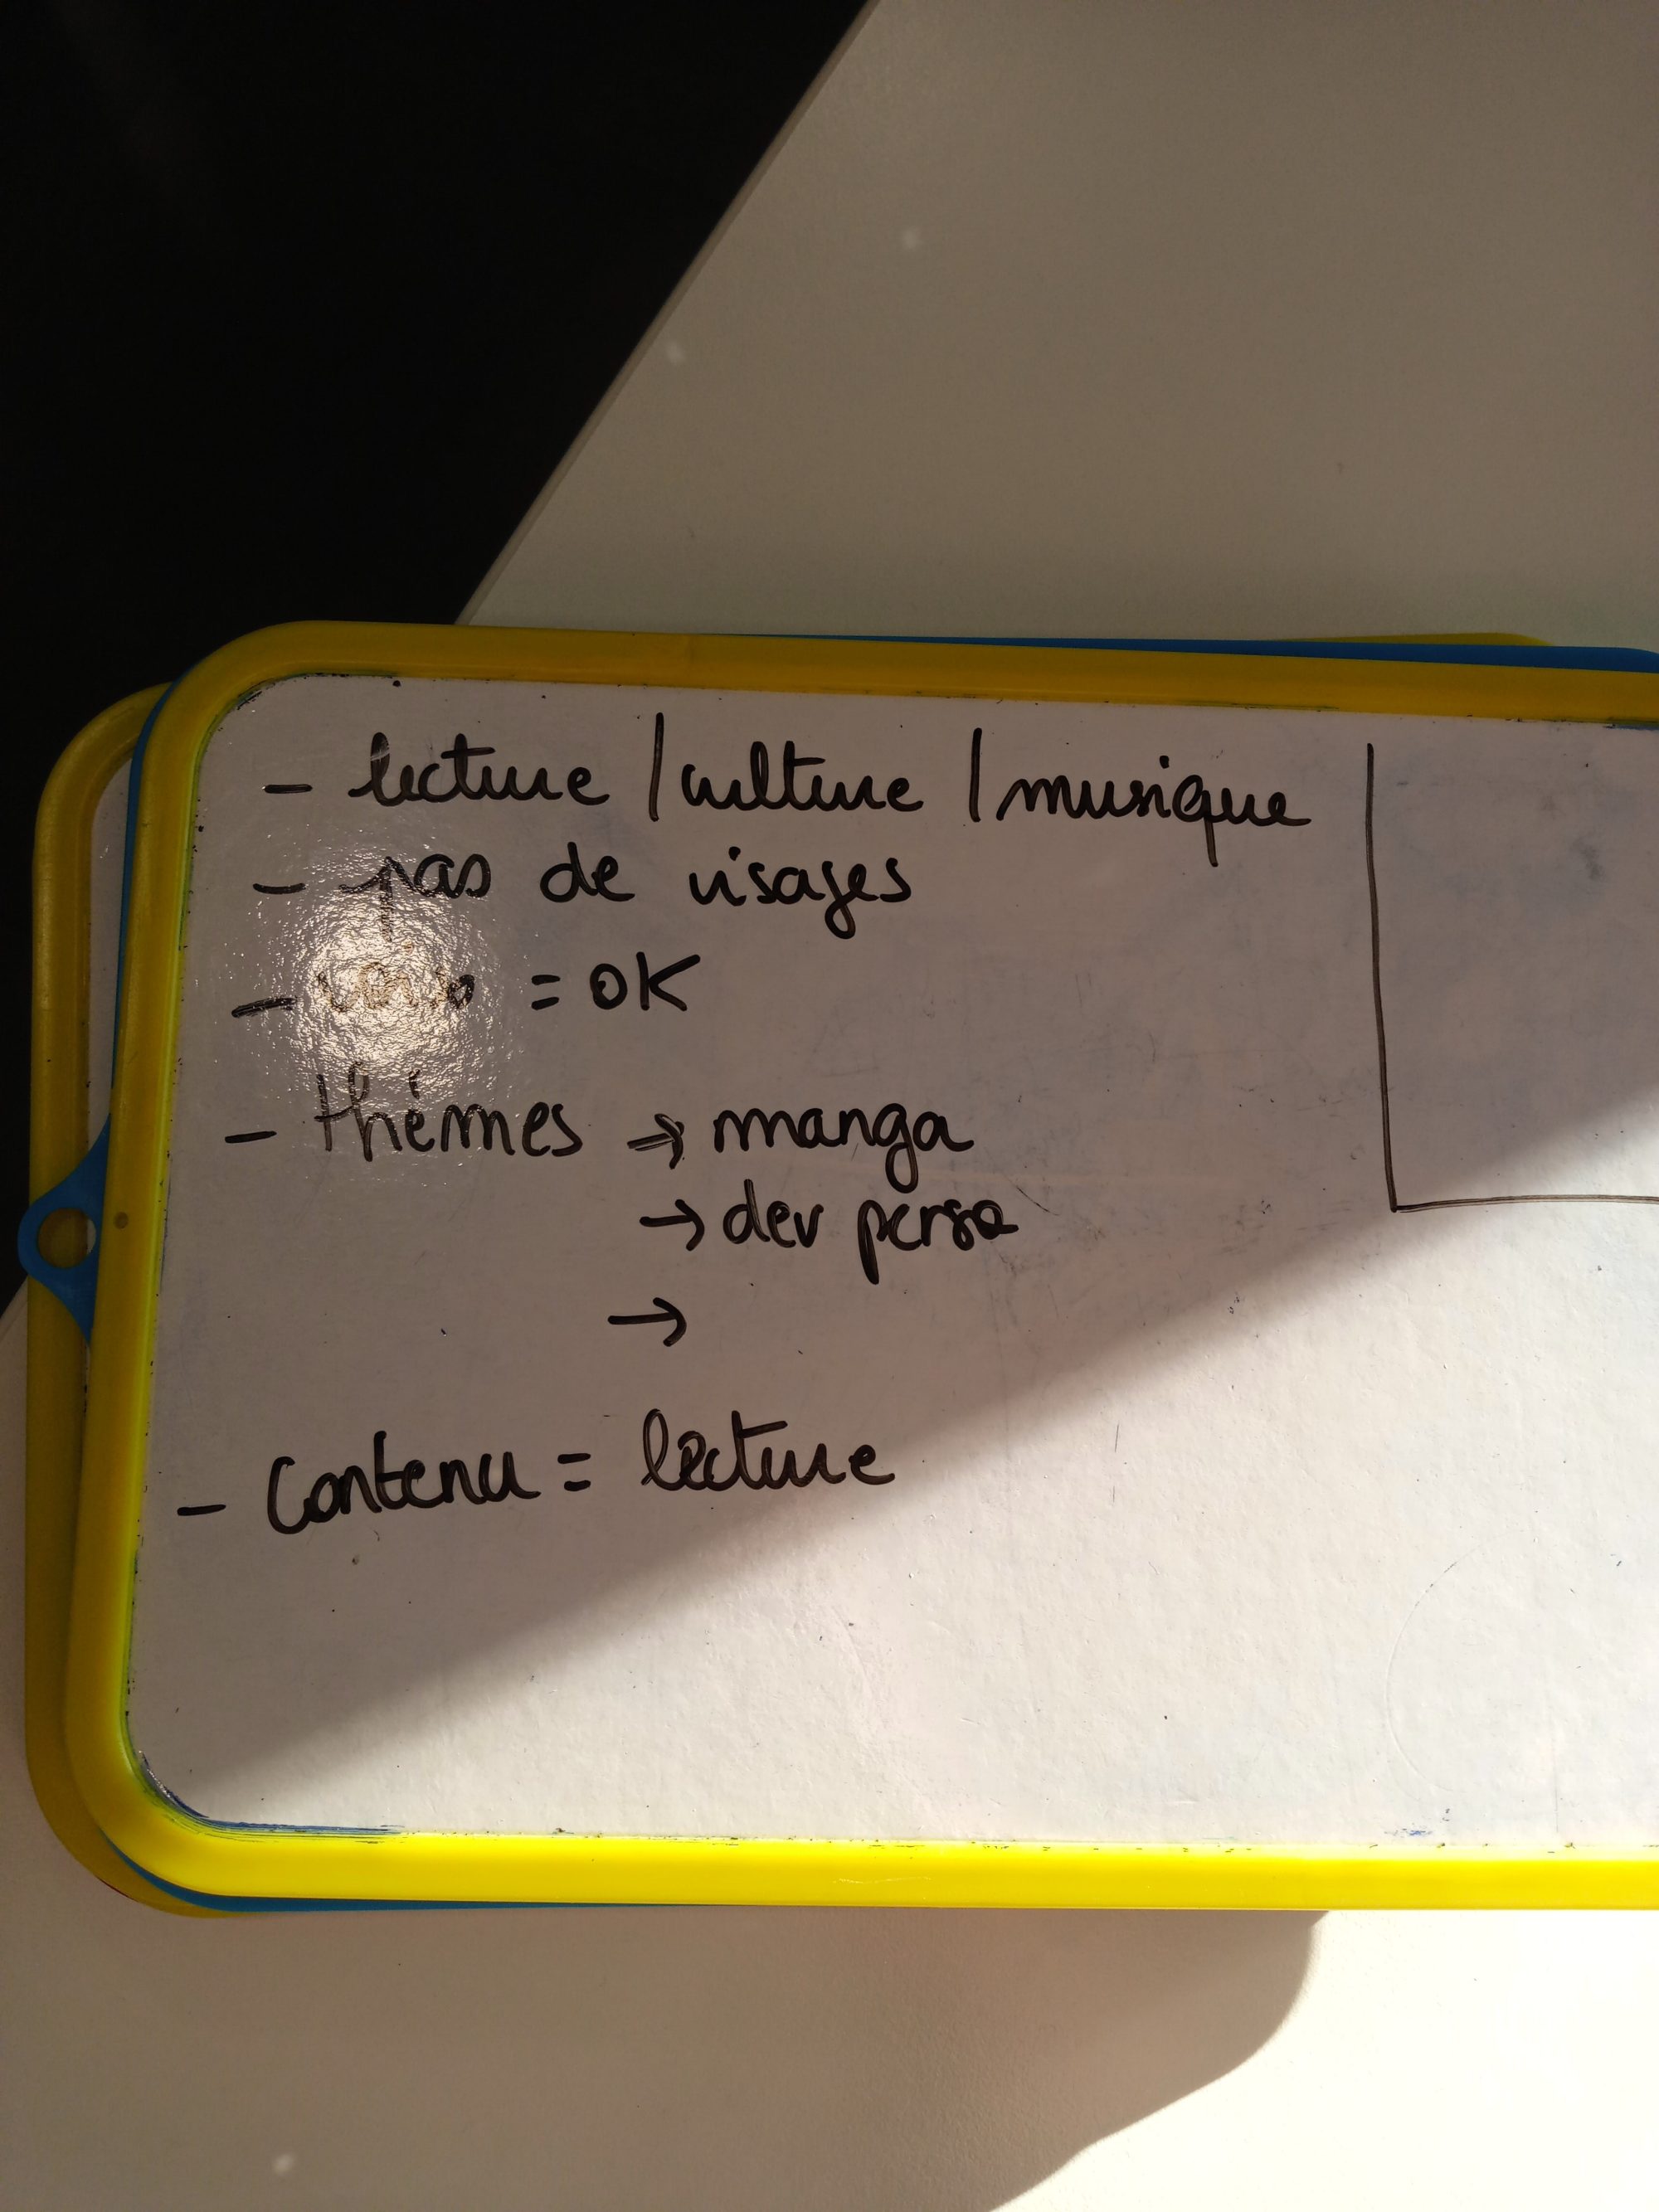 - lecture / culture / musique
- pas de visages
- = OK
- thèmes → manga
→ dev perso
→
- Contenu = lecture